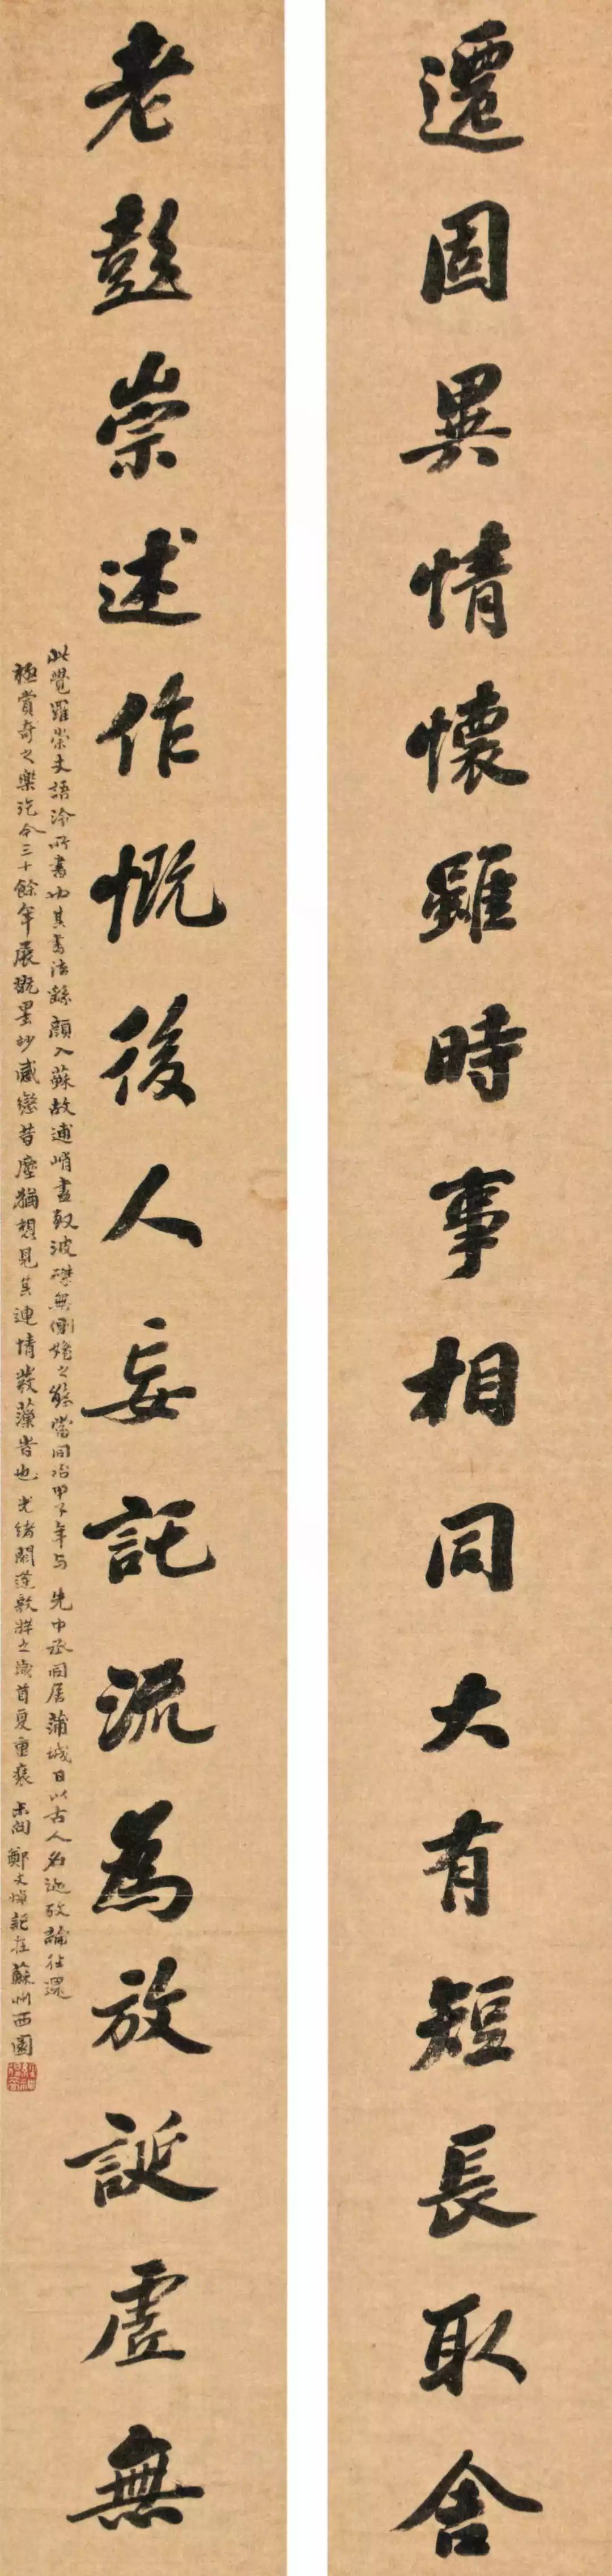 遷固異情懷雖時事相同大有短長取舍
老彭崇述作慨後人妄託流為放誕虛無
此覺羅崇文語泠所書也其書法繇顏入蘇故逋峭盡致波磔無側媚之態當同治甲子年与先中丞同居蒲城日以古人名迹攷論往還
極賞奇之樂迄今三十餘年展翫墨妙感戀昔塵猶想見其連情發藻昔也光緒閼逢敦牂之歲首夏重裝 未問鄭文焯記在蘇州西園